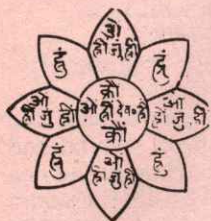 ओं
ह्रीं जुं ह्रीं
हुं
हुं
ओं
ह्रीं जुं ह्रीं
क्रों
ओं ह्रीं देव॰ ह्रीं
क्रों
ओं
ह्रीं जुं ह्रीं
हुं
हुं
ओं
ह्रीं जुं ह्रीं